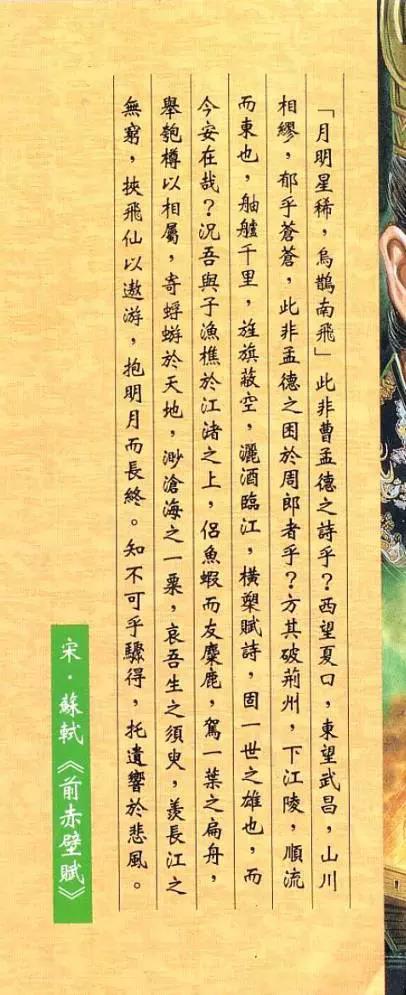 「月明星稀，烏鵲南飛」此非曹孟德之詩乎？西望夏口，東望武昌，山川
相繆，郁乎蒼蒼，此非孟德之困於周郎者乎？方其破荊州，下江陵，順流
而東也，舳艫千里，旌旗蔽空，灑酒臨江，橫槊賦詩，固一世之雄也，而
今安在哉？況吾與子漁樵於江渚之上，侶魚蝦而友麋鹿，駕一葉之扁舟，
舉匏樽以相屬，寄蜉蝣於天地，渺滄海之一粟，哀吾生之須臾，羨長江之
無窮，挾飛仙以遨游，抱明月而長終。知不可乎驟得，托遺響於悲風。
宋．蘇軾《前赤壁賦》